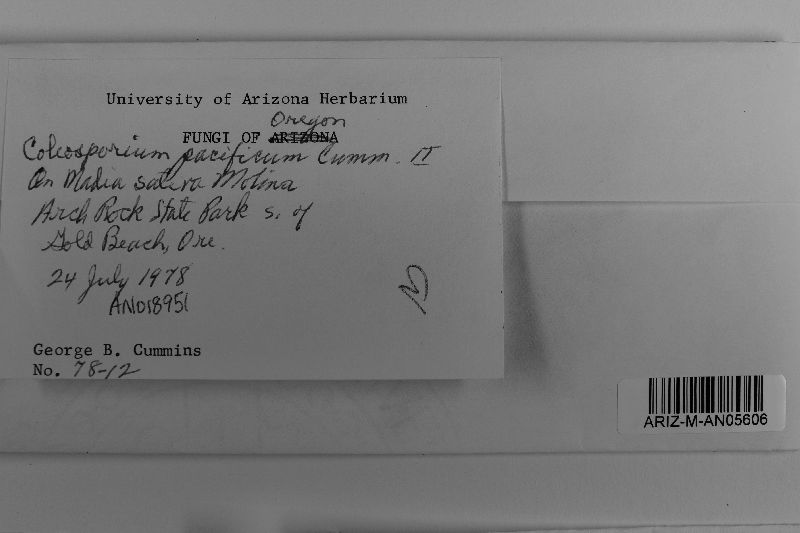 University of Arizona Herbarium
Oregon
FUNGI OF ARIZONA
Coleosporium pacificum Cumm. II
On Madia sativa Molina
Arch Rock State Park s. of
Gold Beach, Ore.
24 July 1978
AN018951
George B. Cummins
No. 78-12
ARIZ-M-AN05606